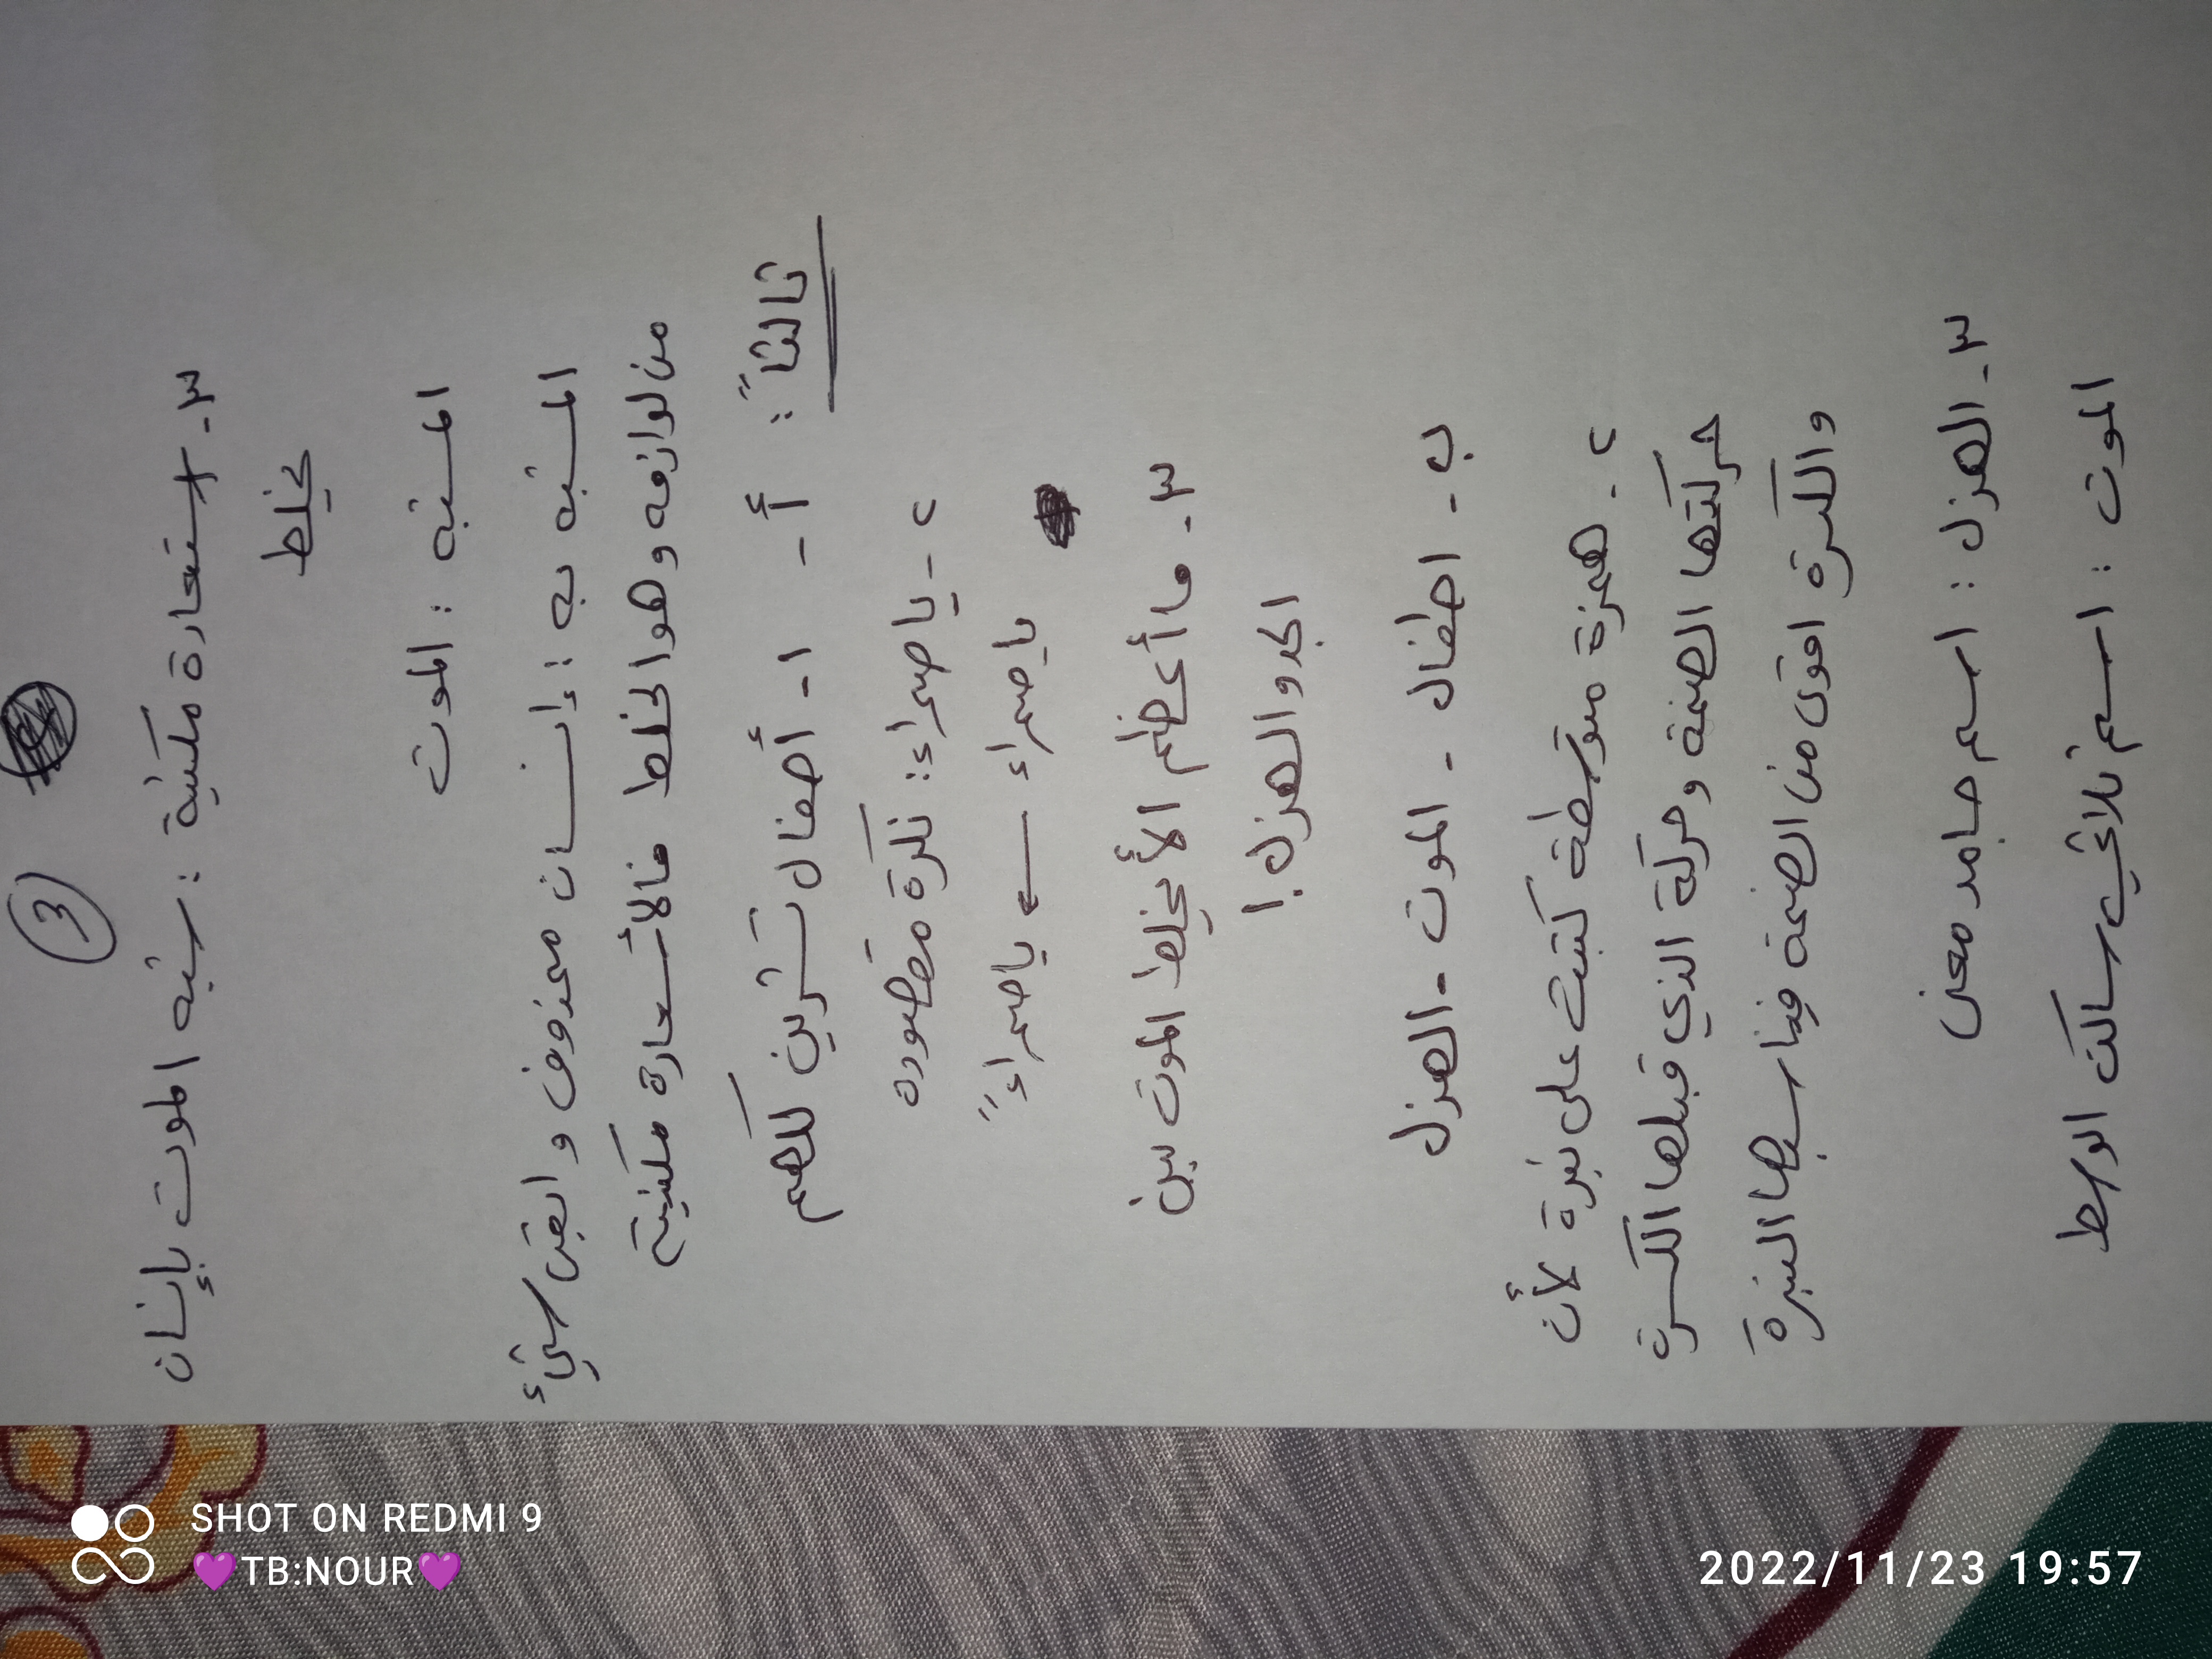 3
٣- استعارة مكنية : شبه الموت بإنسان
يخلط
المشبه : الموت
المشبه به : إنسان محذوف و ابقى شيئ
من لوازمه وهو الخلط فالأستعارة مكنية
ثالثاً :
أ - ١- أطفال تشرين كلهم
٢ - ياصحراء : نكرة مقصودة
ياصحراء ← ياصحراءً
٣- ما أعظم الأ يخلط الموت بين
الجد والهزل !
ب - اطفال - الموت - الهزل
٢ - همزة متوسطة كتبت على نبرة لأن
حركتها الضمة وحركة الذي قبلها الكسرة
والكسرة اقوى من الضمة فناسبها النبرة
٣- الهزل : اسم جامد معنى
الموت : اسم ثلاثي ساكن الوسط
SHOT ON REDMI 9
💜TB:NOUR💜
2022/11/23 19:57